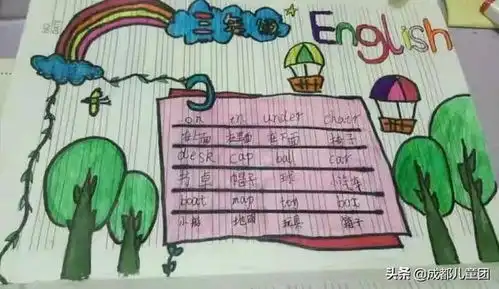 English
on in under chair
在上面 在里面 在下面 椅子
desk cap ball car
书桌 帽子 球 小汽车
boat map toy box
小船 地图 玩具 箱子
头条 @成都儿童团